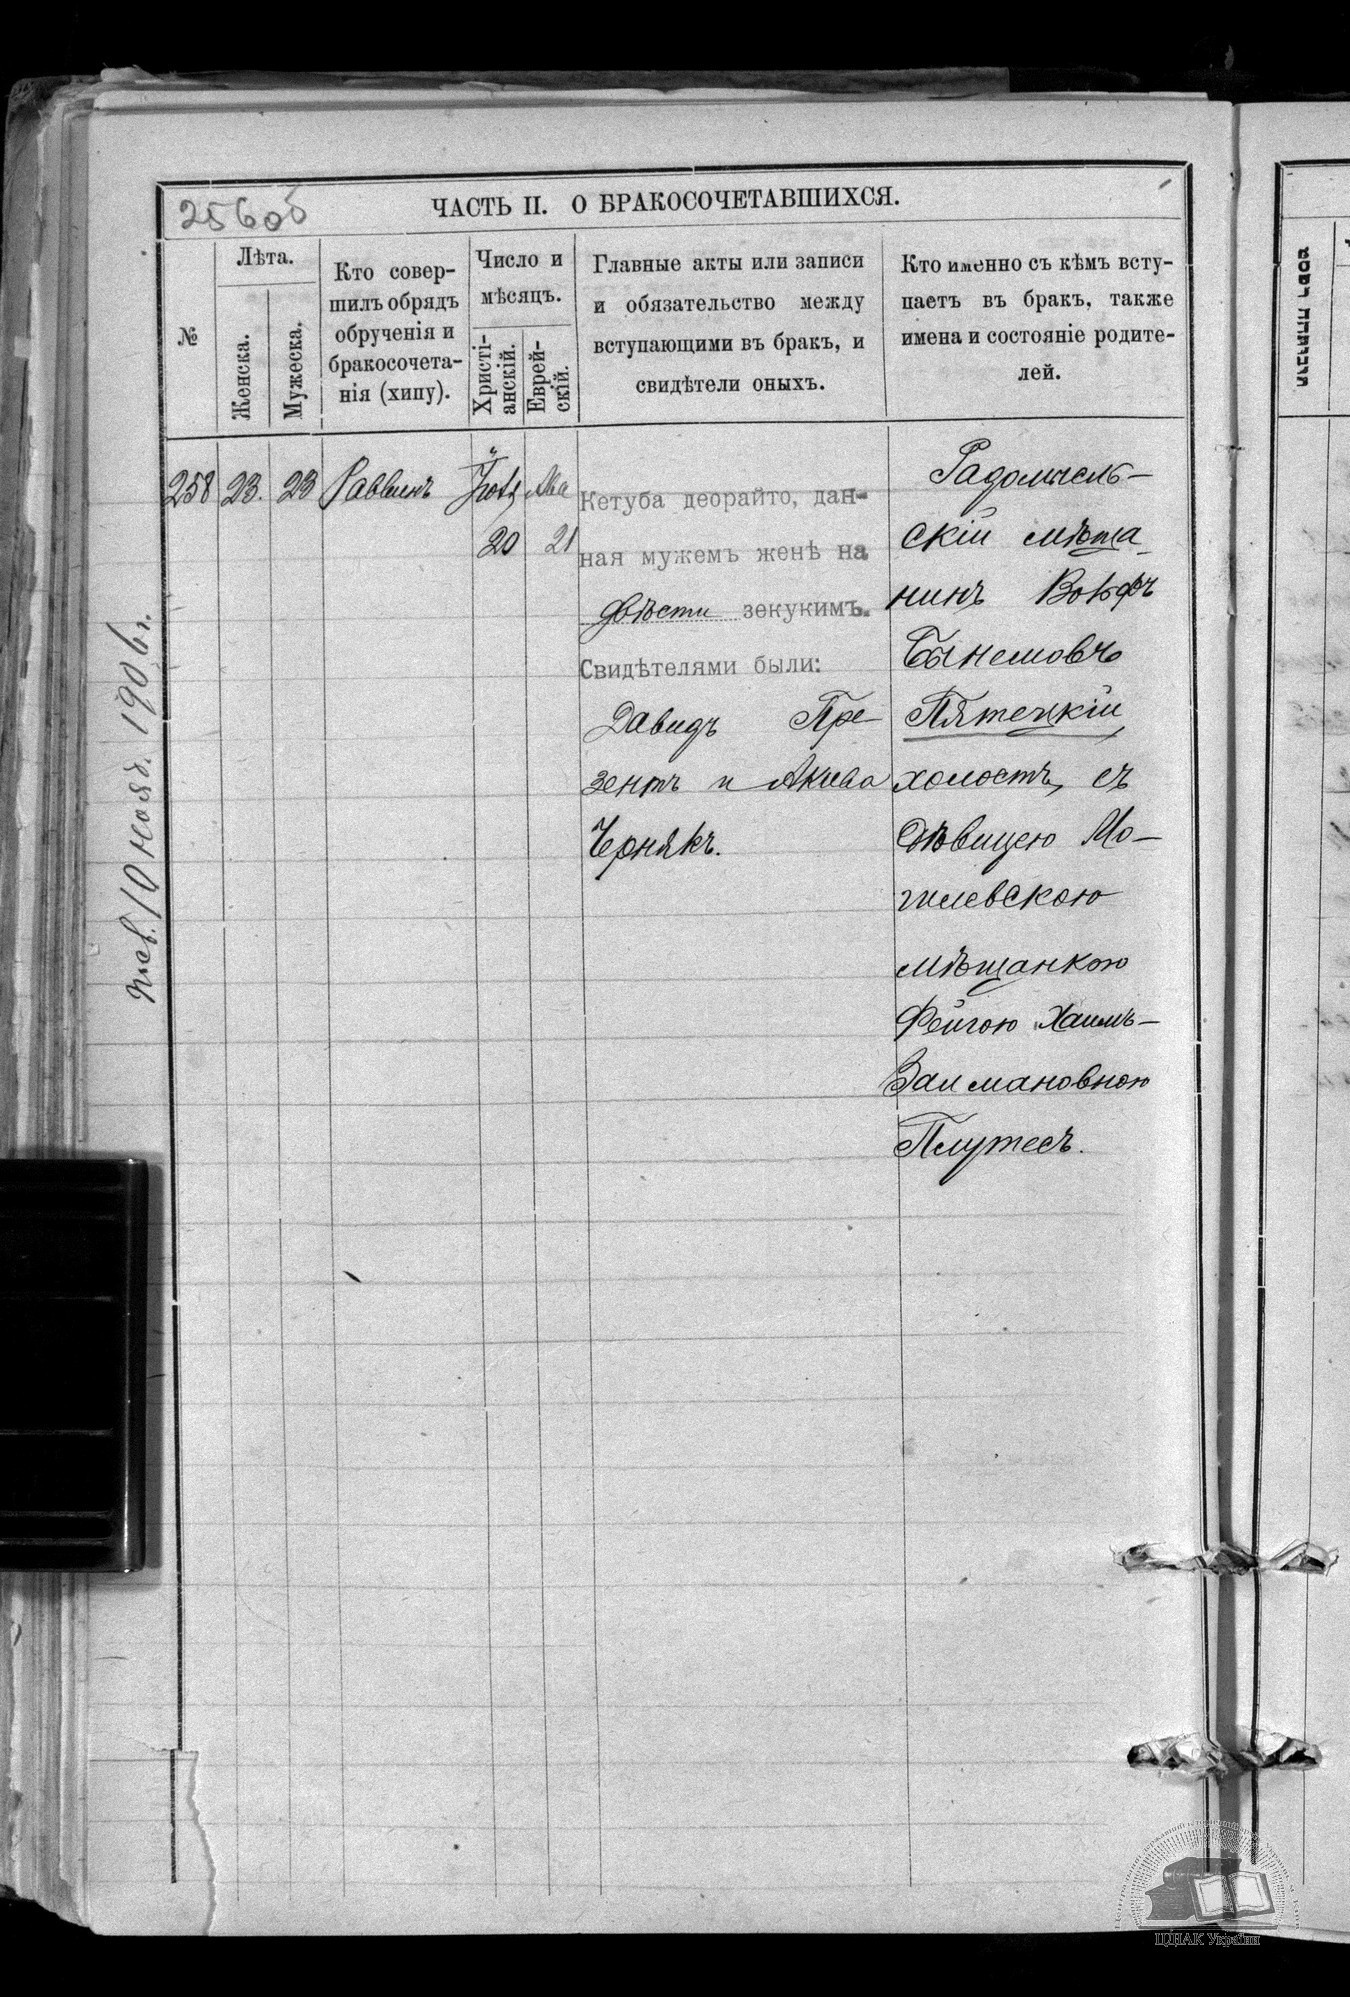 256 об
ЧАСТЬ II. О БРАКОСОЧЕТАВШИХСЯ.
№
Лѣта.
Женска.
Мужеска.
Кто совер-
шилъ обрядъ
обрученія и
бракосочета-
нія (хипу).
Число и
мѣсяцъ.
Христі-
анскій.
Еврей-
скій.
Главные акты или записи
и обязательство между
вступающими въ бракъ, и
свидѣтели оныхъ.
Кто именно съ кѣмъ всту-
паетъ въ бракъ, также
имена и состояніе родите-
лей.
258
23.
23
Раввинъ
20
Ава
21
Кетуба деорайто, дан-
ная мужемъ женѣ на
двѣсти зекукимъ.
Свидѣтелями были:
Давидъ Пре-
зентъ и Акива
Чернякъ.
Радомысль-
скій мѣща-
нинъ Вольфъ
Бынемовъ
Пятецкій,
холостъ, съ
дѣвицею Мо-
гилевскою
мѣщанкою
Фейгою Хаимъ-
Залмановною
Плутесъ.
10 нояб. 1906 г.
ЦДІАК України